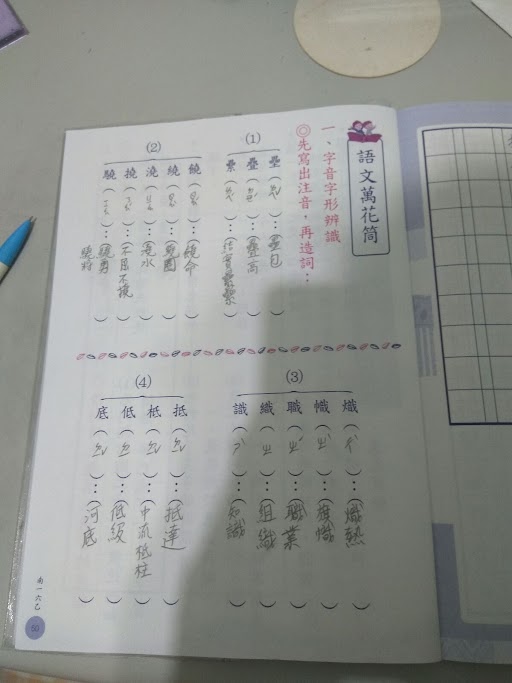 語文萬花筒
一、字音字形辨識
◎先寫出注音，再造詞：
(1)
壘（ㄌㄟˇ）：（壘包）
疊（ㄉㄧㄝˊ）：（疊高）
纍（ㄌㄟˊ）：（結實纍纍）
(2)
饒（ㄖㄠˊ）：（饒命）
繞（ㄖㄠˋ）：（繞圈）
澆（ㄐㄧㄠ）：（澆水）
撓（ㄋㄠˊ）：（不屈不撓）
驍（ㄒㄧㄠ）：（驍勇
驍將）
(3)
熾（ㄔˋ）：（熾熱）
幟（ㄓˋ）：（旗幟）
職（ㄓˊ）：（職業）
織（ㄓ）：（組織）
識（ㄕˋ）：（知識）
(4)
抵（ㄉㄧˇ）：（抵達）
柢（ㄉㄧˇ）：（中流砥柱）
低（ㄉㄧ）：（低級）
底（ㄉㄧˇ）：（河底）
南一六乙
50